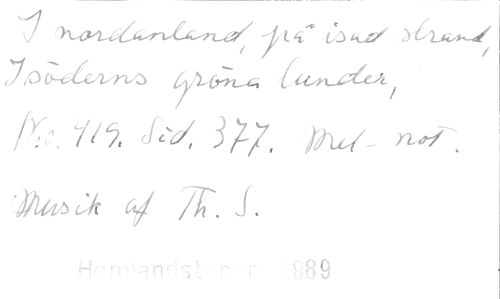 I nordanland, på isad strand,
I söderns gröna lunder,
No. 419. Sid. 377. Mel-not.
Musik af Th. S.
Hemlandstoner 1889